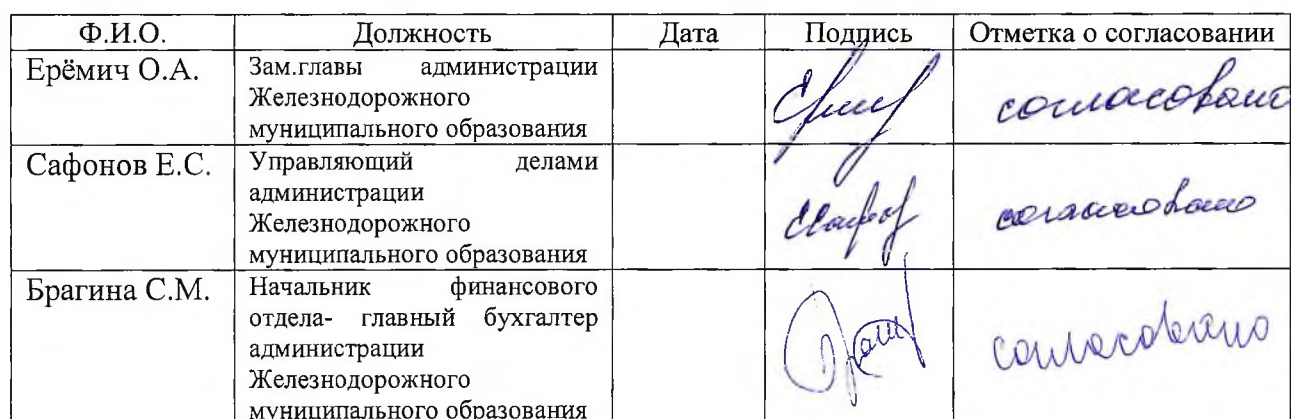 Ф.И.О. Должность Дата Подпись Отметка о согласовании
Ерёмич О.А. Зам.главы администрации
Железнодорожного
муниципального образования
согласовано
Сафонов Е.С. Управляющий делами
администрации
Железнодорожного
муниципального образования
согласовано
Брагина С.М. Начальник финансового
отдела- главный бухгалтер
администрации
Железнодорожного
муниципального образования
согласовано